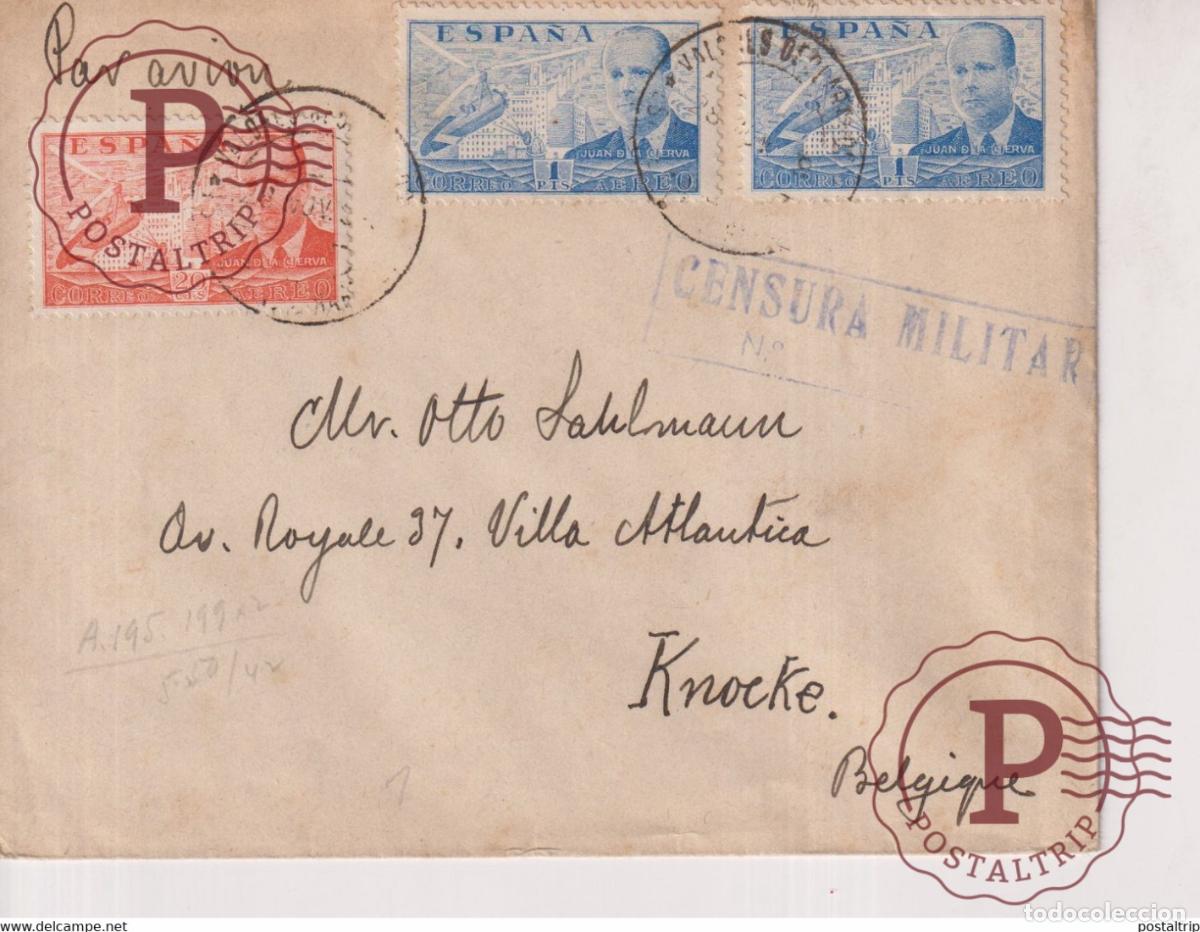 Par avion
ESPAÑA
JUAN DE LA CIERVA
CORREO 1 PTS AEREO
ESPAÑA
JUAN DE LA CIERVA
CORREO 1 PTS AEREO
ESPAÑA
JUAN DE LA CIERVA
CORREO 20 CTS AEREO
P
POSTALTRIP
CENSURA MILITAR
N.º
Mr. Otto Sahlmann
Av. Royale 37. Villa Atlantica
A.195. 199x2
5-50/42
Knocke.
1
Belgique
P
POSTALTRIP
www.delcampe.net
todocoleccion
postaltrip